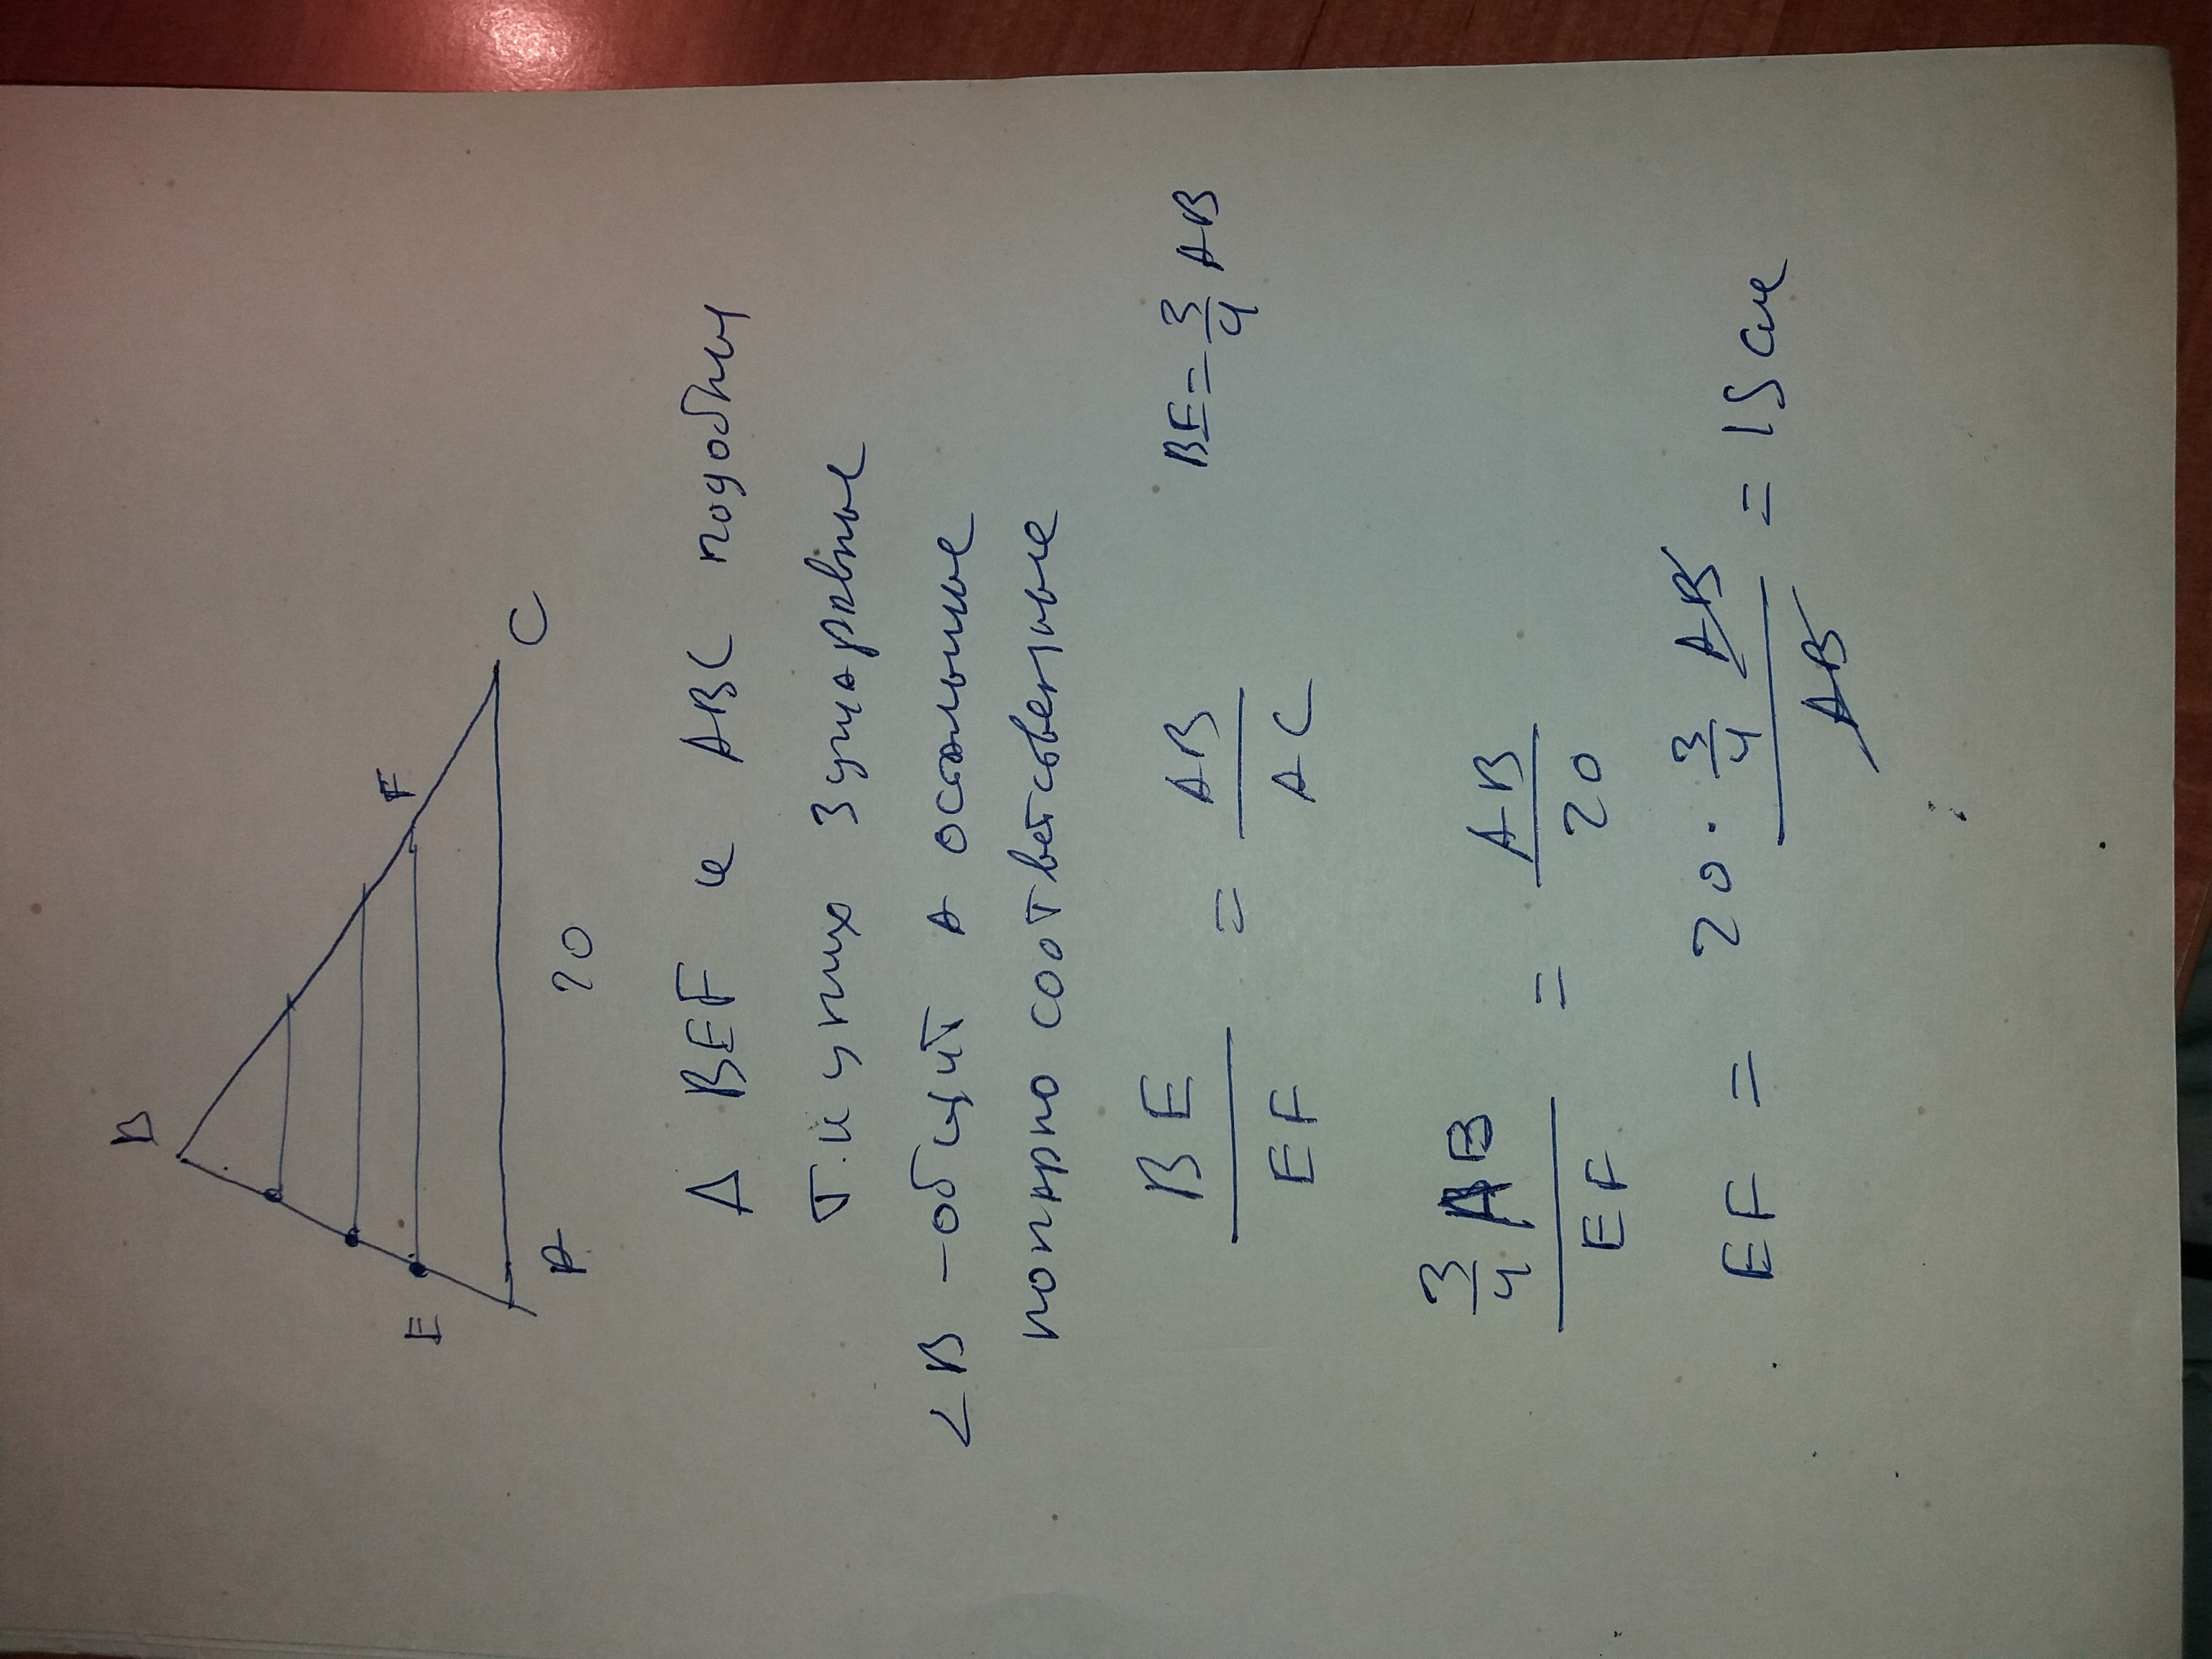 B
F
E
C
A
20
Δ BEF и ABC подобны
т.к у них 3 угла равные
∠B - общий а остальные
попарно соответсвенные
BE/EF = AB/AC BE = 3/4 AB
3/4 AB/EF = AB/20
EF = 20 · 3/4 AB/AB = 15 см